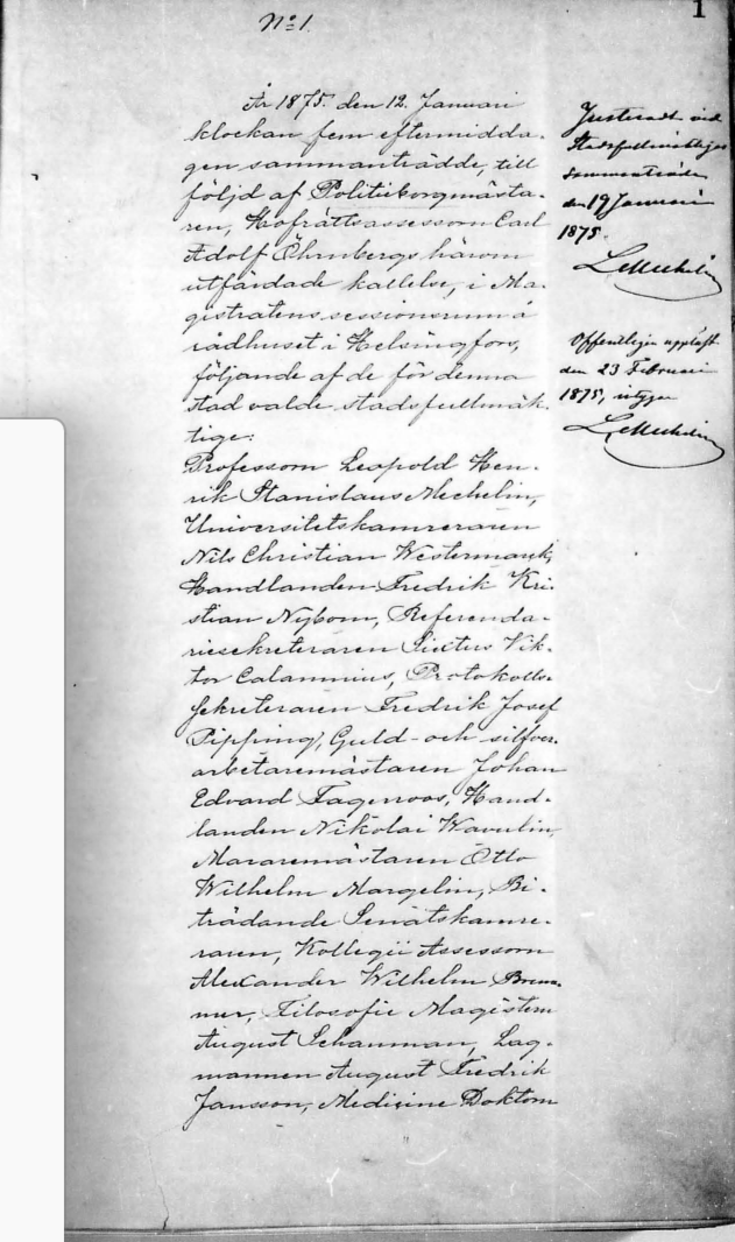 1
No 1.
År 1875. den 12. Januari
klockan fem eftermidda-
gen sammanträdde, till
följd af Politieborgmästa-
ren, Hofrättsassessorn Carl
Adolf Öhrnbergs härom
utfärdade kallelse, i Ma-
gistratens sessionsrum å
rådhuset i Helsingfors,
följande af de för denna
stad valde stadsfullmäk-
tige:
Professorn Leopold Hen-
rik Stanislaus Mechelin,
Universitetskamreraren
Nils Christian Westermarck,
Handlanden Fredrik Kri-
stian Nybom, Referenda-
riesekreteraren Sixtus Vik-
tor Calamnius, Protokolls-
sekreteraren Fredrik Josef
Pipping, Guld- och silfver-
arbetaremästaren Johan
Edvard Fagerroos, Hand-
landen Nikolai Wavulin,
Muraremästaren Otto
Wilhelm Margelin, Bi-
trädande Senatskamre-
raren, Kollegii Assessorn
Alexander Wilhelm Brem-
mer, Filosofie Magistern
August Schauman, Lag-
mannen August Fredrik
Jansson, Medicine Doktorn
Justeradt vid
Stadsfullmäktiges
sammanträde
den 19 Januari
1875.
L Mechelin
Offentligen uppläst
den 23 Februari
1875, intygar
L Mechelin